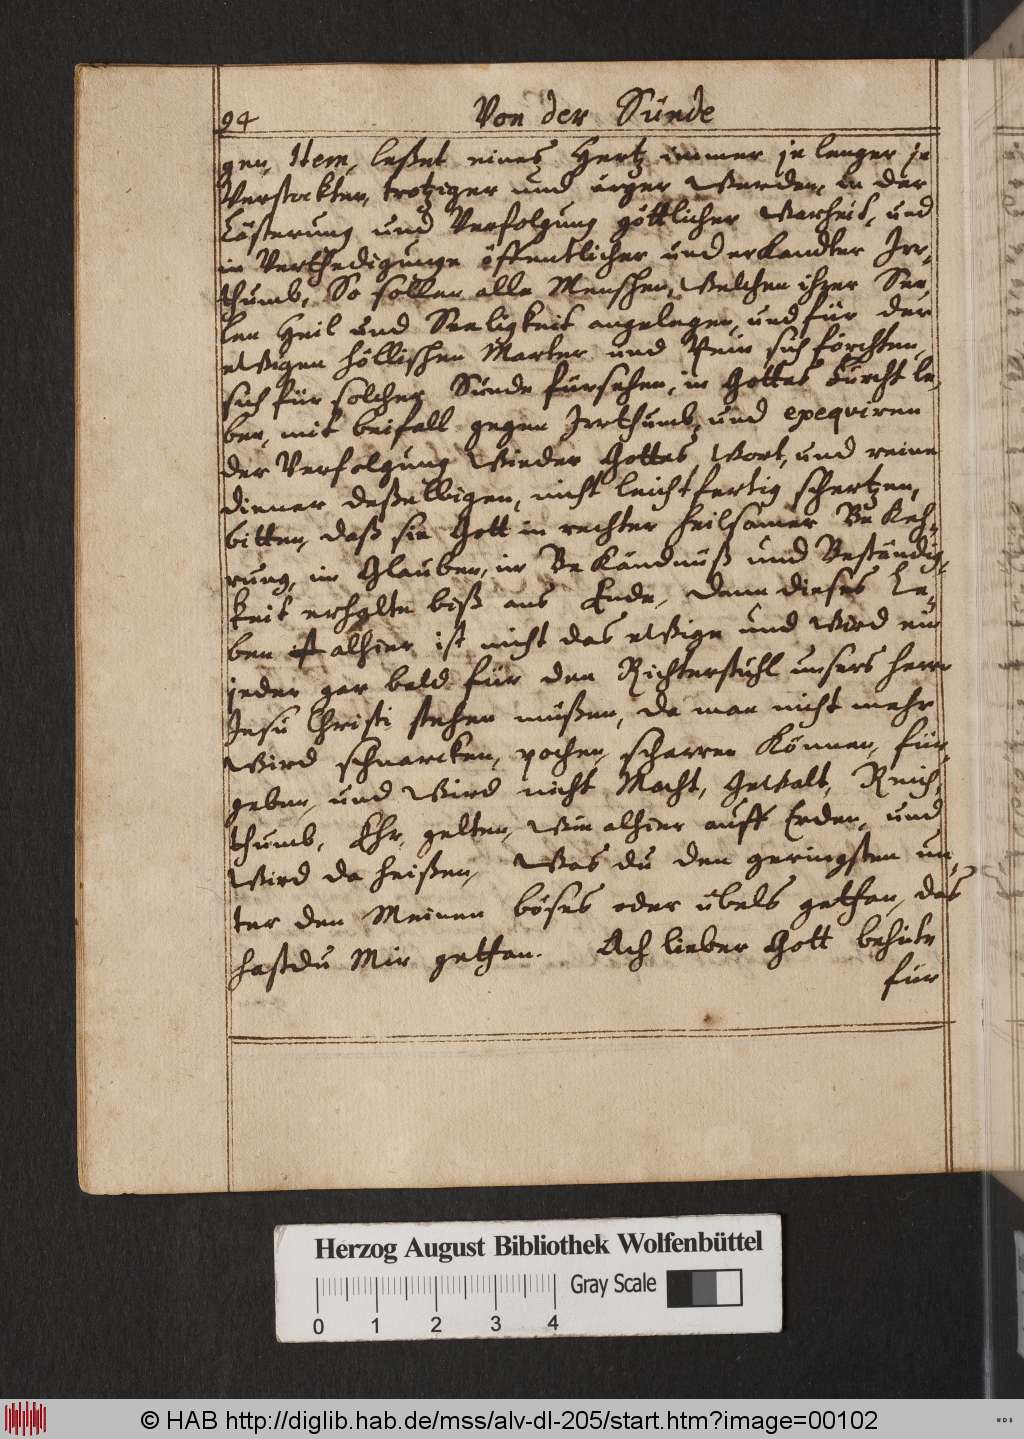 94
Von der Sünde
gen, Item, leßet eines Hertz immer je lenger je
Verstockter, trotziger und ärger werden, in der
Lästerung und Verfolgung göttlicher Warheit, und
in Verthedigunge öffentlicher und erkandter Irr,
thumb, So sollen alle Menschen, welchen ihrer See,
len Heil und Seeligkeit angelegen, und für der
ewigen höllischen Marter und Pein sich förchten,
sich für solcher Sünde fürsehen, in Gottes Furcht le,
ben, mit beifall gegen Irrthumb, und exequiren
der Verfolgung wieder Gottes Wort, und reine
diener deßelbigen, nicht leichtfertig schertzen,
bitten, daß sie Gott in rechter heilsamer Bekeh,
rung, im Glauben, in Bekändnüß und Beständig,
keit erhalte biß ans Ende, denn dieses Le,
ben alhier ist nicht das ewige und wird ein
jeder gar bald für den Richterstuhl unsers Herrn
Jesu Christi stehen müßen, da man nicht mehr
wird schnarcken, pochen, scharren können, für,
geben, und wird nicht Macht, Gewalt, Reich,
thumb, Ehr, gelten, wie alhier auff Erden, und
wird da heißen, Was du den geringsten un,
ter den Meinen böses oder übels gethan, das
hastdu Mir gethan. Ach lieber Gott behüte
für
Herzog August Bibliothek Wolfenbüttel
Gray Scale
0 1 2 3 4
© HAB http://diglib.hab.de/mss/alv-dl-205/start.htm?image=00102